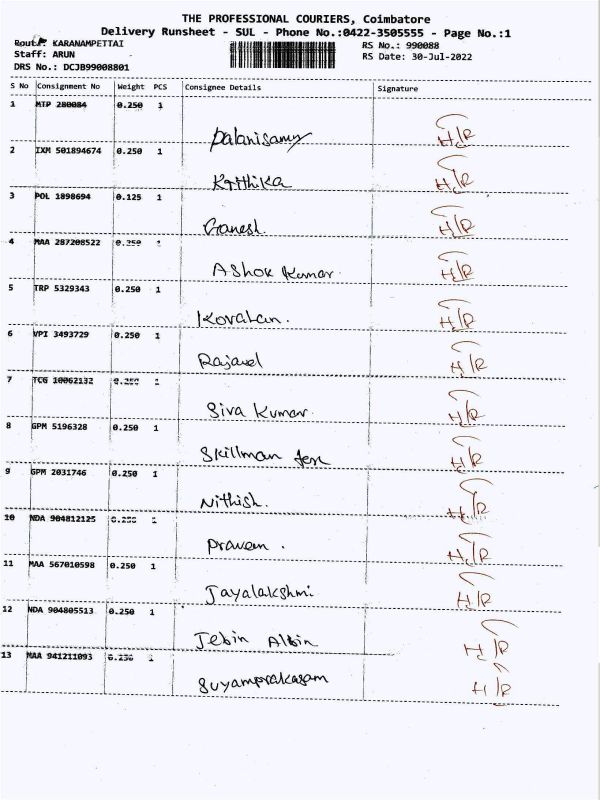 THE PROFESSIONAL COURIERS, Coimbatore
Delivery Runsheet - SUL - Phone No.:0422-3505555 - Page No.:1
Route: KARANAMPETTAI
RS No.: 990088
Staff: ARUN
RS Date: 30-Jul-2022
DRS No.: DCJB99008801
S No Consignment No Weight PCS Consignee Details Signature
1 MTP 280084 0.250 1
Palanisamy H/R
2 IXM 501894674 0.250 1
Kritthika H/R
3 POL 1898694 0.125 1
Ganesh. H/R
4 MAA 287208522 0.250 1
Ashok Kumar. H/R
5 TRP 5329343 0.250 1
Kovalan. H/R
6 VPI 3493729 0.250 1
Rajavel H/R
7 TCG 10062132 0.250 1
Siva Kumar. H/R
8 GPM 5196328 0.250 1
Skillman H/R
9 GPM 2031746 0.250 1
Nithish. H/R
10 NDA 904812125 0.250 1
Praveen. H/R
11 MAA 567010598 0.250 1
Jayalakshmi H/R
12 NDA 904805513 0.250 1
Jebin Albin H/R
13 MAA 941211093 0.250 1
Suyamprakasam H/R